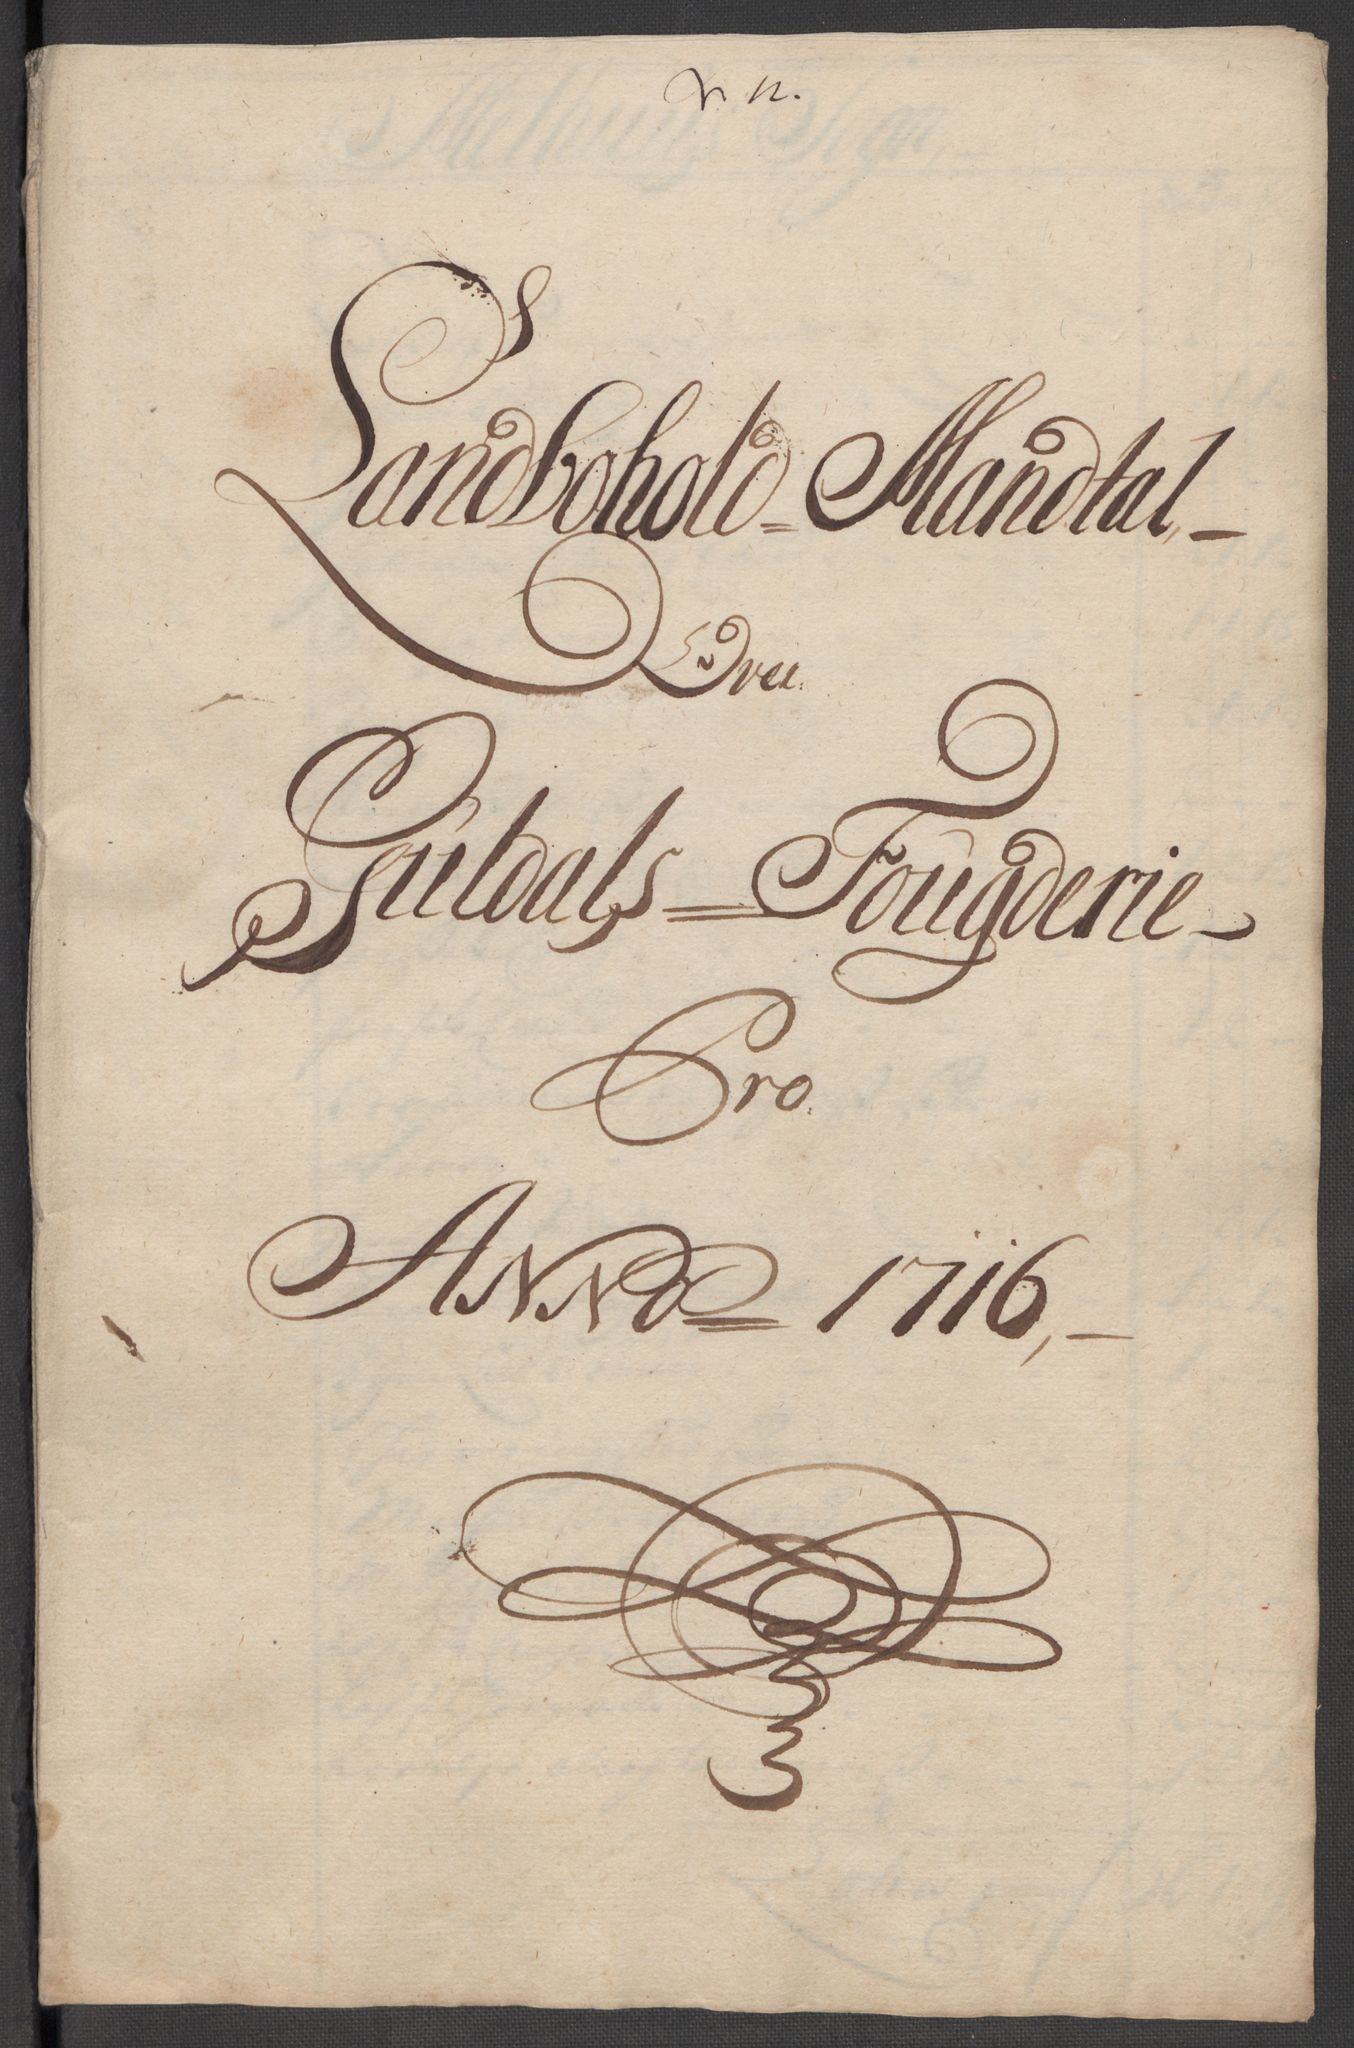 N. 12.
Landbohold = Mandtal, -
Over
Guldals = Fougderie -
Pro.
ANNO = 1716, -